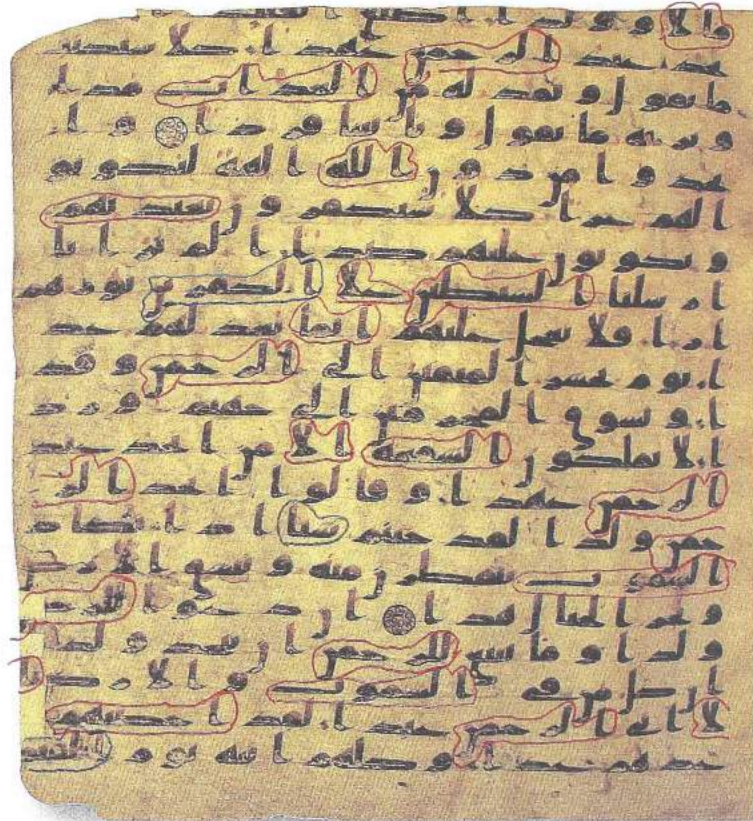 مالا وولدا اطلع الغيب ام ا
تخذ عند الرحمن عهدا كلا سنكتب
ما يقول ونمد له من العذاب مدا
ونرثه ما يقول وياتينا فردا وا
تخذوا من دون الله الهة ليكونو
ا لهم عزا كلا سيكفرون بعبدتهم
ويكونون عليهم ضدا الم تر انا
ارسلنا الشيطين على الكفرين تؤزهم
ازا فلا تعجل عليهم انما نعد لهم عد
ا يوم نحشر المتقين الى الرحمن وفد
ا ونسوق المجرمين الى جهنم ورد
ا لا يملكون الشفعة الا من اتخذ عند
الرحمن عهدا وقالوا اتخذ الر
حمن ولدا لقد جئتم شيا ادا تكاد
السموت يتفطرن منه وتنشق الارض
وتخر الجبال هدا ان دعوا للرحمن
ولدا وما ينبغي للرحمن ان يتخذ ولد
ا ان كل من في السموت والارض ا
لا اتي الرحمن عبدا لقد احصيهم
وعدهم عدا وكلهم اتيه يوم القيمة